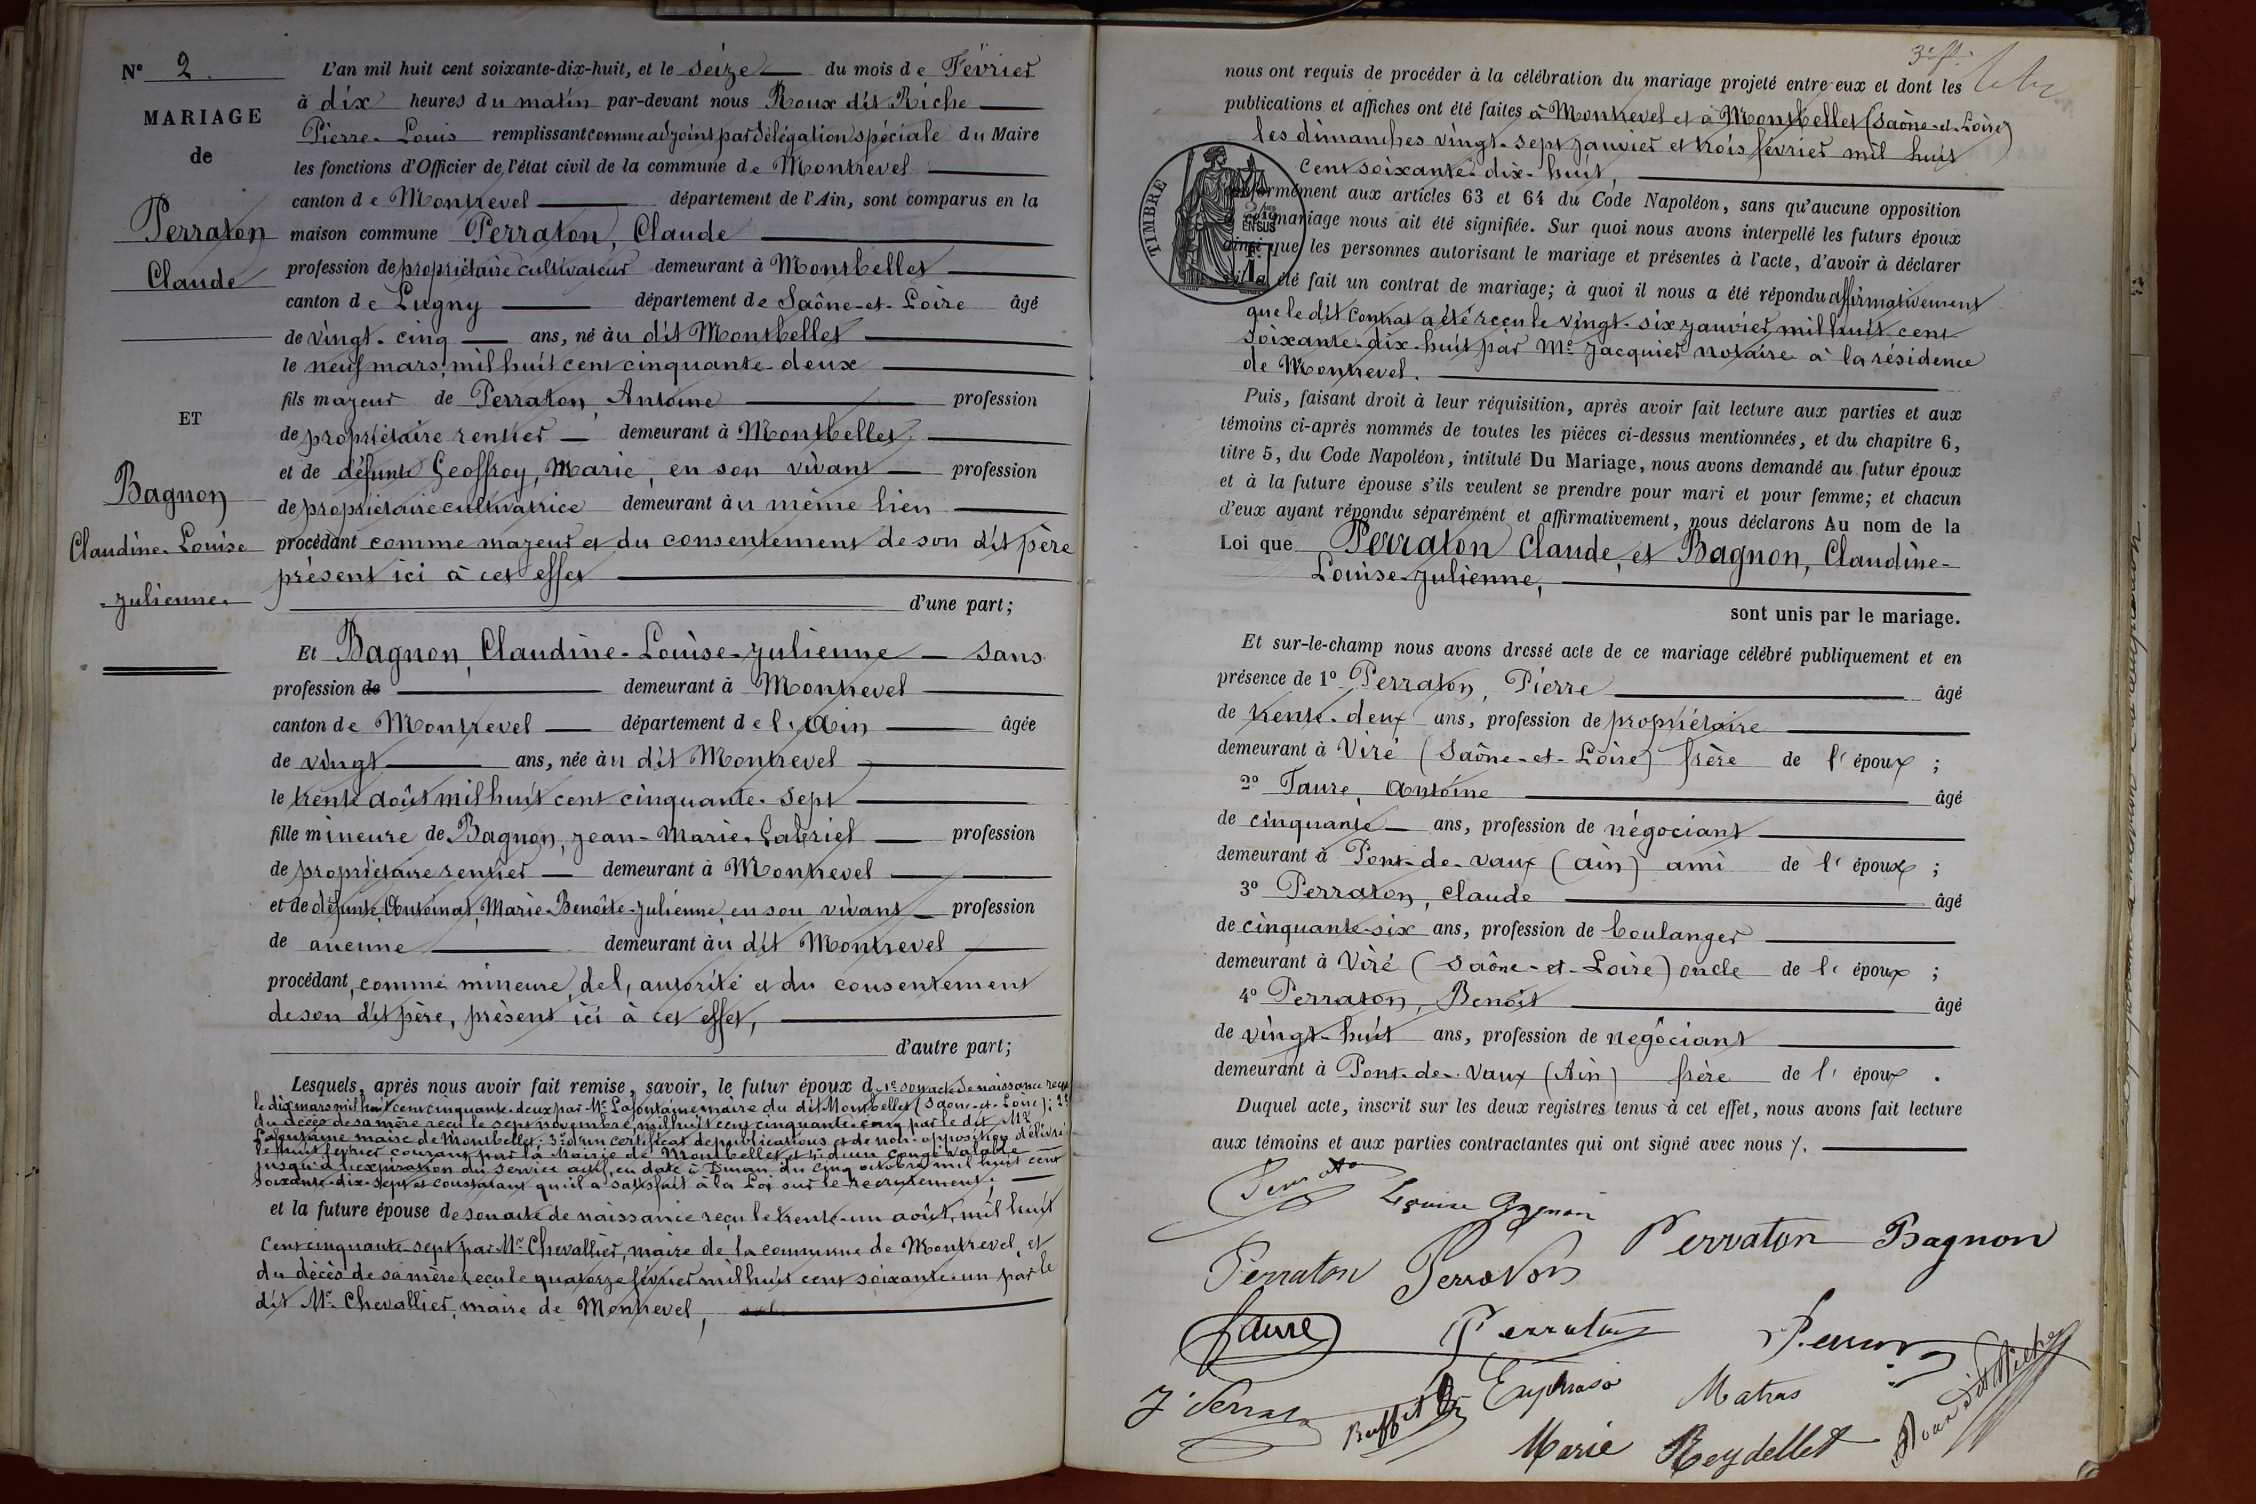 N° 2.
MARIAGE
de
Perraton
Claude
ET
Bagnon
Claudine-Louise
-Julienne.
L'an mil huit cent soixante-dix-huit, et le seize du mois de Février
à dix heures du matin par-devant nous Roux dit Riche
Pierre-Louis remplissant comme adjoint par délégation spéciale du Maire
les fonctions d'Officier de l'état civil de la commune de Montrevel
canton de Montrevel département de l'Ain, sont comparus en la
maison commune Perraton, Claude
profession de propriétaire cultivateur demeurant à Montbellet
canton de Lugny département de Saône-et-Loire âgé
de vingt-cinq ans, né au dit Montbellet
le neuf mars mil huit cent cinquante-deux
fils majeur de Perraton, Antoine profession
de propriétaire rentier demeurant à Montbellet,
et de défunte Geoffroy, Marie, en son vivant profession
de propriétaire cultivatrice demeurant au même lieu
procédant comme majeur et du consentement de son dit père
présent ici à cet effet
d'une part;
Et Bagnon, Claudine-Louise-Julienne sans
profession de demeurant à Montrevel
canton de Montrevel département de l'Ain âgée
de vingt ans, née au dit Montrevel
le trente août mil huit cent cinquante-sept
fille mineure de Bagnon, Jean-Marie-Gabriel profession
de propriétaire rentier demeurant à Montrevel
et de défunte Antoinat, Marie-Benoîte-Julienne, en son vivant profession
de aucune demeurant au dit Montrevel
procédant, comme mineure, de l'autorité et du consentement
de son dit père, présent ici à cet effet,
d'autre part;
Lesquels, après nous avoir fait remise, savoir, le futur époux d 1° son acte de naissance reçu
le dix mars mil huit cent cinquante-deux par Mr Lafontaine maire du dit Montbellet (Saône-et-Loire); 2°
du décès de sa mère reçu le sept novembre mil huit cent cinquante-cinq par le dit Mr
Lafontaine maire de Montbellet; 3° d'un certificat de publications et de non-opposition délivré
le huit février courant par la Mairie de Montbellet et 4° d'un congé valable
jusqu'à l'expiration du service actif, en date à Dinan du cinq octobre mil huit cent
soixante-dix-sept et constatant qu'il a satisfait à la Loi sur le recrutement;
et la future épouse de son acte de naissance reçu le trente-un août, mil huit
cent cinquante-sept par Mr Chevallier, maire de la commune de Montrevel, et
du décès de sa mère reçu le quatorze février mil huit cent soixante-un par le
dit Mr Chevallier, maire de Montrevel,
nous ont requis de procéder à la célébration du mariage projeté entre eux et dont les
publications et affiches ont été faites à Montrevel et à Montbellet (Saône-et-Loire)
les dimanches vingt-sept janvier et trois février mil huit
cent soixante-dix-huit,
conformément aux articles 63 et 64 du Code Napoléon, sans qu'aucune opposition
à ce mariage nous ait été signifiée. Sur quoi nous avons interpellé les futurs époux
ainsi que les personnes autorisant le mariage et présentes à l'acte, d'avoir à déclarer
s'il a été fait un contrat de mariage; à quoi il nous a été répondu affirmativement
que le dit contrat a été reçu le vingt-six janvier mil huit cent
soixante-dix-huit par Me Jacquier notaire à la résidence
de Montrevel.
TIMBRE
EN SUS
Puis, faisant droit à leur réquisition, après avoir fait lecture aux parties et aux
témoins ci-après nommés de toutes les pièces ci-dessus mentionnées, et du chapitre 6,
titre 5, du Code Napoléon, intitulé Du Mariage, nous avons demandé au futur époux
et à la future épouse s'ils veulent se prendre pour mari et pour femme; et chacun
d'eux ayant répondu séparément et affirmativement, nous déclarons Au nom de la
Loi que Perraton Claude, et Bagnon, Claudine-
Louise-Julienne,
sont unis par le mariage.
Et sur-le-champ nous avons dressé acte de ce mariage célébré publiquement et en
présence de 1° Perraton, Pierre âgé
de trente-deux ans, profession de propriétaire
demeurant à Viré (Saône-et-Loire) frère de l'époux;
2° Faure, Antoine âgé
de cinquante ans, profession de négociant
demeurant à Pont-de-Vaux (Ain) ami de l'époux;
3° Perraton, Claude âgé
de cinquante-six ans, profession de boulanger
demeurant à Viré (Saône-et-Loire) oncle de l'époux;
4° Perraton, Benoît âgé
de vingt-huit ans, profession de négociant
demeurant à Pont-de-Vaux (Ain) frère de l'époux.
Duquel acte, inscrit sur les deux registres tenus à cet effet, nous avons fait lecture
aux témoins et aux parties contractantes qui ont signé avec nous.
Perraton Louise Bagnon
Perraton Perraton Perraton Bagnon
Faure Perraton
Euphrasie Matras
Buffet
Marie Reydellet Roux dit Riche